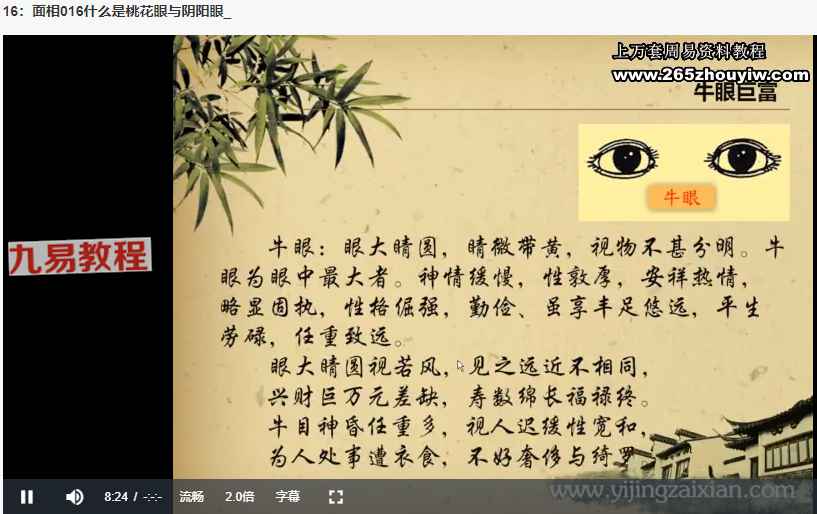 16：面相016什么是桃花眼与阴阳眼_
上万套周易资料教程
www.265zhouyiw.com
牛眼巨富
牛眼
九易教程
牛眼：眼大睛圆，睛微带黄，视物不甚分明。牛
眼为眼中最大者。神情缓慢，性敦厚，安祥热情，
略显固执，性格倔强，勤俭、虽享丰足悠远，平生
劳碌，任重致远。
眼大睛圆视若风，见之远近不相同，
兴财巨万元差缺，寿数绵长福禄终。
牛目神昏任重多，视人迟缓性宽和，
为人处事遭衣食，不好奢侈与绮罗
www.yijingzaixian.com
8:24 / -:-:- 流畅 2.0倍 字幕